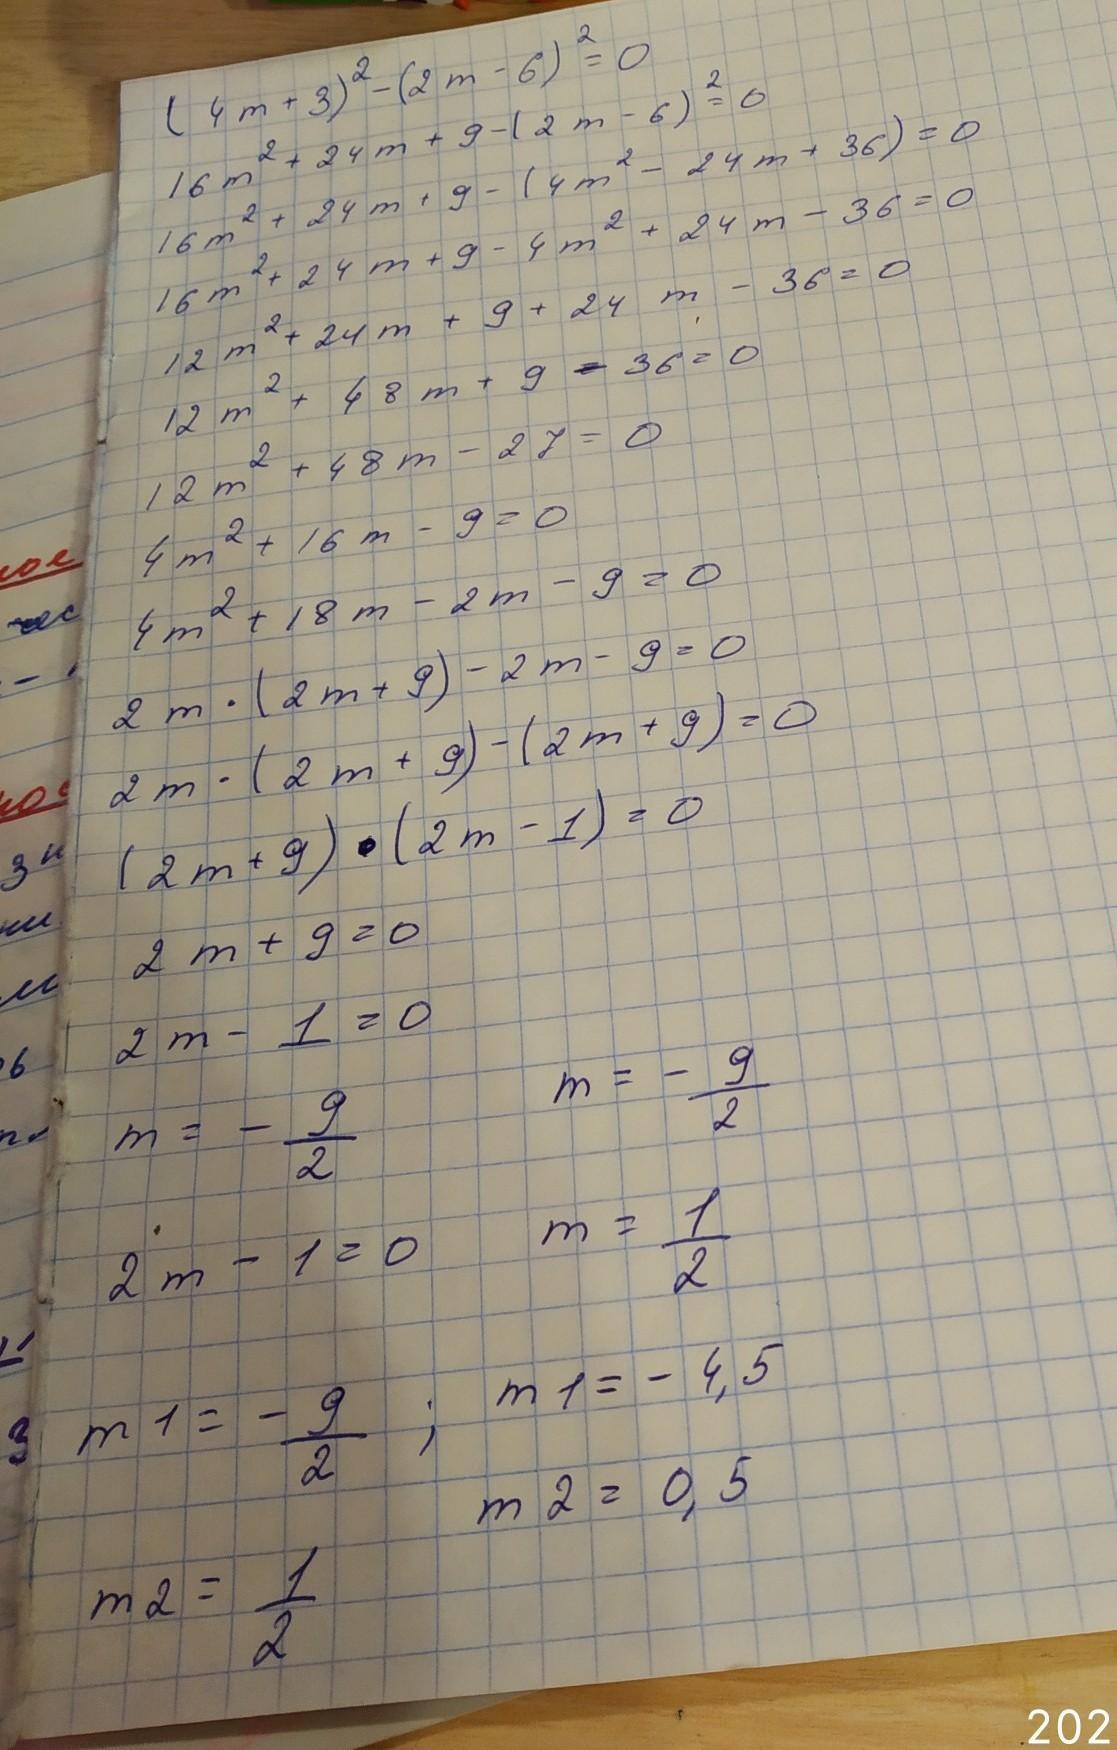 (4m+3)²-(2m-6)²=0
16m²+24m+9-(2m-6)²=0
16m²+24m+9-(4m²-24m+36)=0
16m²+24m+9-4m²+24m-36=0
12m²+24m+9+24m-36=0
12m²+48m+9-36=0
12m²+48m-27=0
4m²+16m-9=0
4m²+18m-2m-9=0
2m·(2m+9)-2m-9=0
2m·(2m+9)-(2m+9)=0
(2m+9)·(2m-1)=0
2m+9=0
2m-1=0
m=-9/2
2m-1=0
m=-9/2
m=1/2
m1=-9/2;
m1=-4,5
m2=0,5
m2=1/2
202